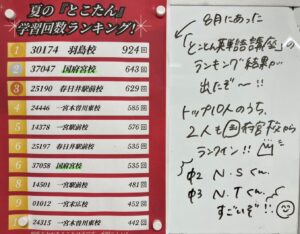 夏の『とことん』
学習回数ランキング!
1 30174 羽島校 924回
2 37047 国府宮校 643回
3 25190 春日井駅前校 629回
4 24446 一宮木曽川東校 585回
5 14378 一宮駅前校 576回
6 15297 春日井駅前校 535回
6 37058 国府宮校 535回
8 14501 一宮駅前校 481回
9 01612 一宮末広校 452回
24315 一宮木曽川東校 442回
8月にあった
「とことん英単語講会」の
ランキング結果が
出たぞ〜!!
トップ10人のうち、
2人も国府宮校から
ランクイン!!
中2 N・Sくん
中3 N・Tくん
すごいぞ!!